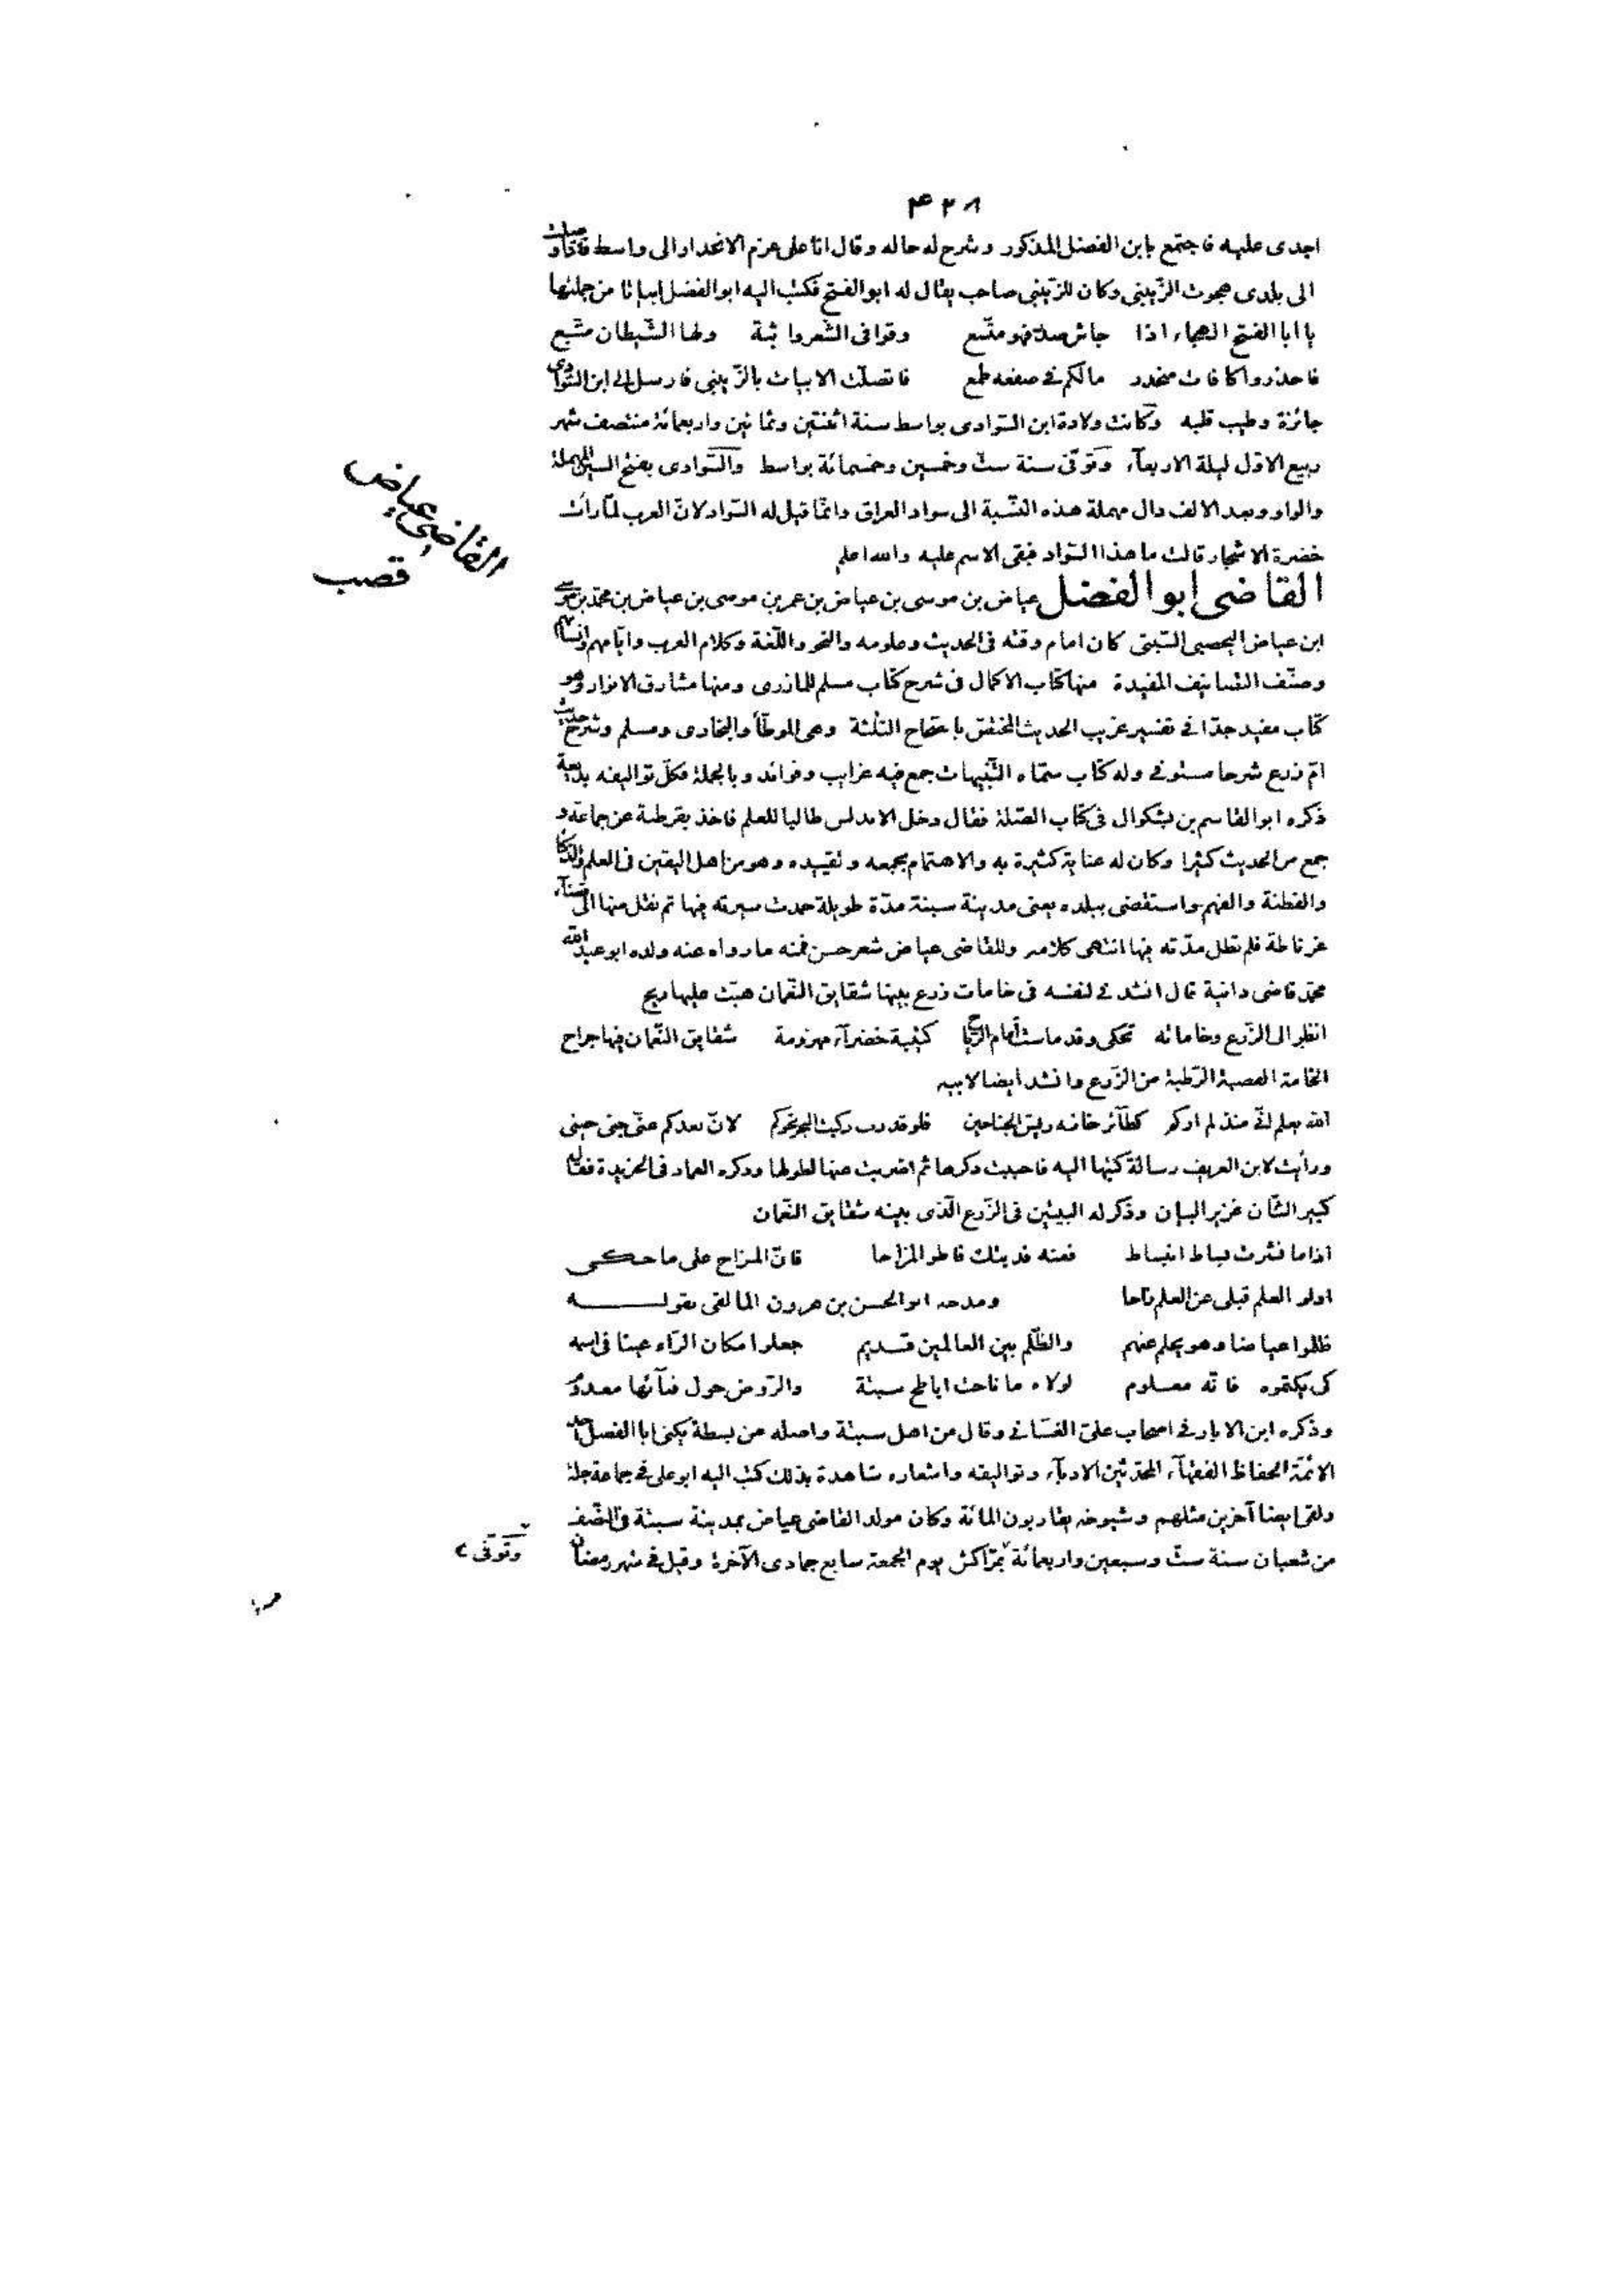 ٤٢٨
اجدى عليه فاجتمع بابن الفضل المذكور وشرح له حاله وقال انا على عزم الانحدار الى واسط فاذا وصلت
الى بلدى هجوت الزّينبى وكان للزّينبى صاحب يقال له ابو الفتح فكتب اليه ابو الفضل ابياتا من جملتها
يا ابا الفتح الهجاء اذا جاش صدر فهو متّسع وقوافى الشّعر واثبة ولها الشّيطان متّبع
فاحذروا كافات منحدر مالكم فى صفعه طمع فاتصلت الابيات بالزّينبى فارسل الى ابن السّوادى
جائزة وطيب قلبه وكانت ولادة ابن السّوادى بواسط سنة اثنتين وثمانين واربعمائة منتصف شهر
ربيع الاوّل ليلة الاربعآء وتوفّى سنة ستّ وخمسين وخمسمائة بواسط والسّوادى بفتح السين المهملة
والواو وبعد الالف دال مهملة هذه النّسبة الى سواد العراق وانّما قيل له السّواد لانّ العرب لمّا رات
خضرة الاشجار قالت ما هذا السّواد فبقى الاسم عليه والله اعلم
القاضى ابو الفضل عياض بن موسى بن عياض بن عمر بن موسى بن عياض بن محمّد بن موسى
ابن عياض اليحصبى السّبتى كان امام وقته فى الحديث وعلومه والنحو واللّغة وكلام العرب وايّامهم وانسابهم
وصنّف التّصانيف المفيدة منها كتاب الاكمال فى شرح كتاب مسلم للمازرى ومنها مشارق الانوار وهو
كتاب مفيد جدّا فى تفسير غريب الحديث المختصّ بالصّحاح الثّلثة وهى الموطّأ والبخارى ومسلم وشرح حديث
امّ زرع شرحا مستوفى وله كتاب سمّاه التّنبيهات جمع فيه غرايب وفوائد وبالجملة فكلّ تواليفه بديعة
ذكره ابو القاسم بن بشكوال فى كتاب الصّلة فقال دخل الاندلس طالبا للعلم فاخذ بقرطبة عن جماعة و
جمع من الحديث كثيرا وكان له عناية كثيرة به والاهتمام بجمعه وتقييده وهو من اهل اليقين فى العلم والذّكا
والفطنة والفهم واستقضى ببلده يعنى مدينة سبتة مدّة طويلة حمدت سيرته فيها ثم نقل منها الى قضآء
غرناطة فلم تطل مدّته فيها انتهى كلامه وللقاضى عياض شعر حسن فمنه ما رواه عنه ولده ابو عبد الله
محمّد قاضى دانية قال انشدنى لنفسه فى خامات زرع بينها شقايق النّعمان هبّت عليها ريح
انظر الى الزّرع وخاماته تحكى وقد ماست امام الرّياح كتيبة خضرآء مهزومة شقايق النّعمان فيها جراح
الخامة القصبة الرّطبة من الزّرع وانشد ايضا لابيه
الله يعلم انّى منذ لم اركم كطآئر خانه ريش الجناحين فلو قدرت ركبت البحر نحوكم لانّ بعدكم عنّى جنى حينى
ورأيت لابن العريف رسالة كتبها اليه فاحببت ذكرها ثم اضربت عنها لطولها وذكره العماد فى الخريدة فقال
كبير الشّان غزير البيان وذكر له البيتين فى الزّرع الّذى بينه شقايق النّعمان
اذا ما نشرت بساط انبساط فعنه فديتك فاطو المزاحا فانّ المزاح على ما حكى
اولو العلم قبلى عن العلم زاحا ومدحه ابو الحسن بن هرون المالقى بقوله
ظلموا عياضا وهو يحلم عنهم والظّلم بين العالمين قديم جعلوا مكان الرّاء عينا فى اسمه
كى يكتموه فانّه معلوم لولاه ما ناحت اباطح سبتة والرّوض حول فنآئها معدوم
وذكره ابن الابار فى اصحاب علىّ الغسّانى وقال من اهل سبتة واصله من بسطة يكنى ابا الفضل احد
الائمّة الحفاظ الفقهآء المحدّثين الادبآء وتواليفه واشعاره شاهدة بذلك كتب اليه ابو على فى جماعة جلّة
ولقى ايضا آخرين مثلهم وشيوخه يقاربون المائة وكان مولد القاضى عياض بمدينة سبتة فى النّصف
من شعبان سنة ستّ وسبعين واربعمائة بمرّاكش يوم الجمعة سابع جمادى الآخرة وقيل فى شهر رمضان
وتوفّى
القاضى عياض
قصب